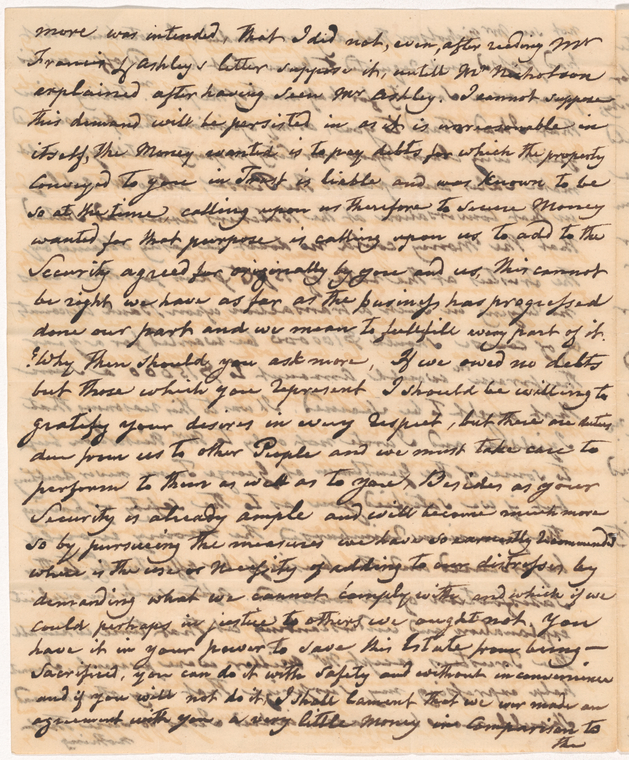 more was intended, that I did not, even, after reading Mr
Francis & Ashleys letter suppose it, untill Mr Nicholson
explained after having seen Mr Ashley. I cannot suppose
this demand will be persisted in as it is unreasonable in
itself, the Money wanted is to pay debts for which the property
Conveyed to you in Trust is liable and was known to be
so at the time, calling upon us therefore to Secure Money
wanted for that purpose is calling upon us to add to the
Security agreed for originally by you and us, this cannot
be right, we have as far as the business has progressed
done our part and we mean to fullfill every part of it.
Why then should you ask more, If we owed no debts
but those which you represent I should be willing to
gratify your desires in every respect, but there are duties
due from us to other People and we must take care to
perform to them as well as to you. Besides as your
Security is already ample and will become much more
so by pursuing the measures we have so earnestly recommended
where is the use or necessity of adding to our distresses by
demanding what we cannot comply with and which if we
could perhaps in justice to others we ought not, You
have it in your power to save this Estate from being
Sacrificed, you can do it with Safety and without inconvenience
and if you will not do it, I shall lament that we ever made an
agreement with you a very little Money in Comparison to
the